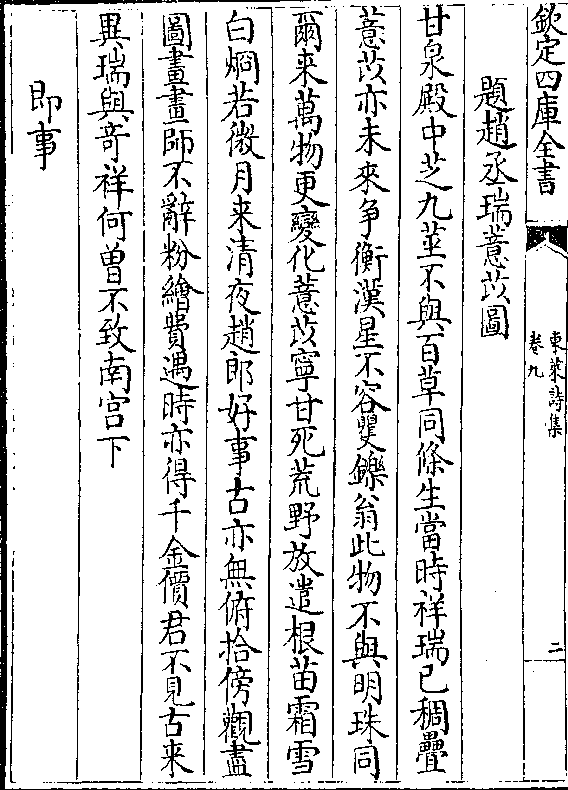 欽定四庫全書
東萊詩集
卷九
二
題趙丞瑞薏苡圖
甘泉殿中芝九莖不與百草同條生當時祥瑞已稠疊
薏苡亦未來爭衡漢星不容矍鑠翁此物不與明珠同
爾来萬物更變化薏苡寧甘死荒野放遣根苗霜雪
白烱若微月来清夜趙郎好事古亦無俯拾傍觀盡
圖畫畫師不辭粉繪費遇時亦得千金價君不見古来
異瑞與竒祥何曽不致南宫下
即事